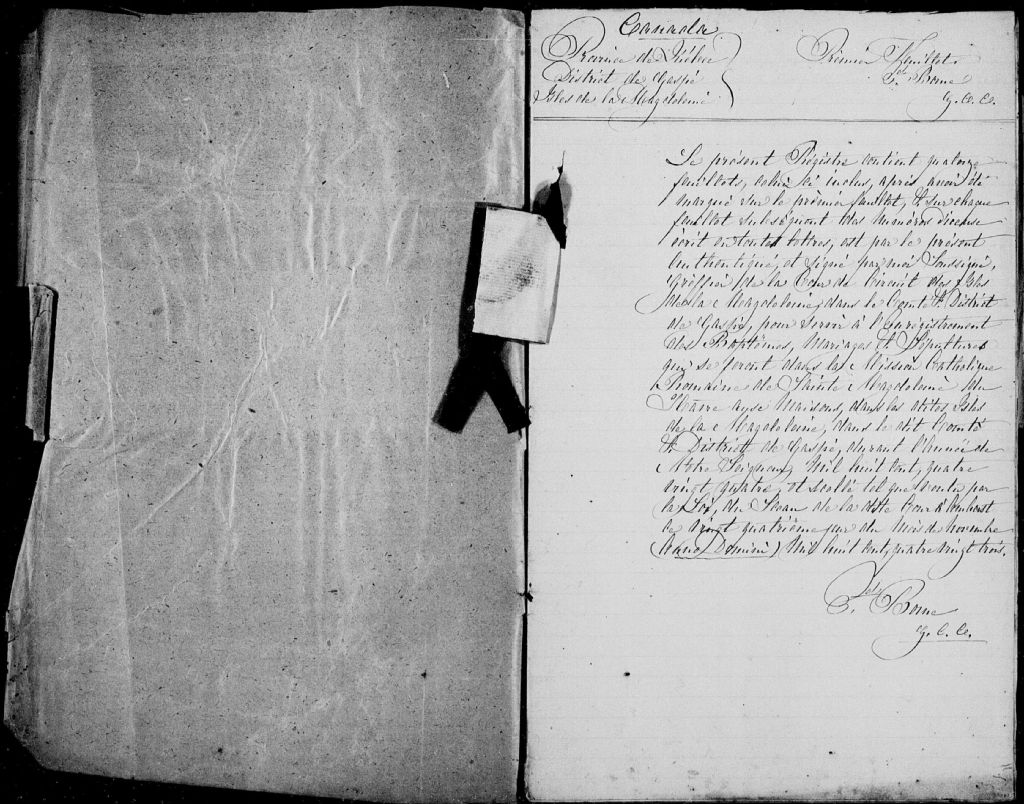 Canada
Province de Québec
District de Gaspé
Isles de la Magdeleine
Premier Feuillet
J. Borne
G. C. C.
Le présent Régistre contient quatorze
feuillets, celui ci inclus, après avoir été
marqué sur le prémier feuillet, et sur chaque
feuillet subséquent des numéros
écrit en toutes lettres, est par le présent
authentiqué et signé par moi Soussigné,
Gréffier de la Cour de Circuit des Isles
de la Magdeleine, dans le Comté & District
de Gaspé, pour servir à l'Enrégistrement
des Baptêmes, Mariages et Sépultures
qui se feront dans la Mission Catholique
Romaine de Sainte Magdeleine du
Hâvre aux Maisons, dans les dites Isles
de la Magdeleine, dans le dit Comté
& District de Gaspé, durant l'Année de
Notre Seigneur, Mil huit cent, quatre
vingt quatre, et scellé tel que voulu par
la Loi, du Sceau de la dite Cour à Amherst
ce vingt quatrième jour du Mois de novembre
(Anno Domini) Mil huit cent quatre vingt trois.
J. Borne
G. C. C.